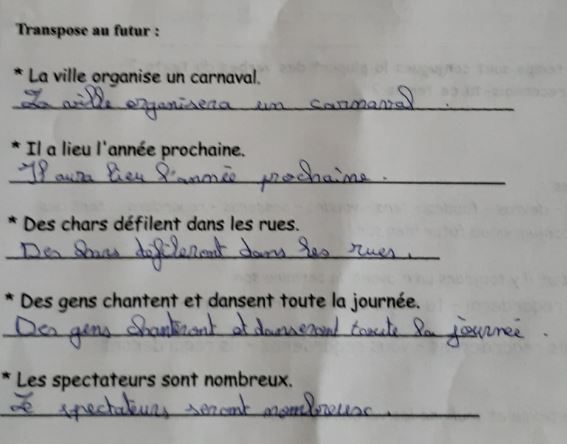 Transpose au futur :
* La ville organise un carnaval.
La ville organisera un carnaval .
* Il a lieu l'année prochaine.
Il aura lieu l'année prochaine .
* Des chars défilent dans les rues.
Des chars défileront dans les rues .
* Des gens chantent et dansent toute la journée.
Des gens chanteront et danseront toute la journée .
* Les spectateurs sont nombreux.
Le spectateurs seront nombreux .